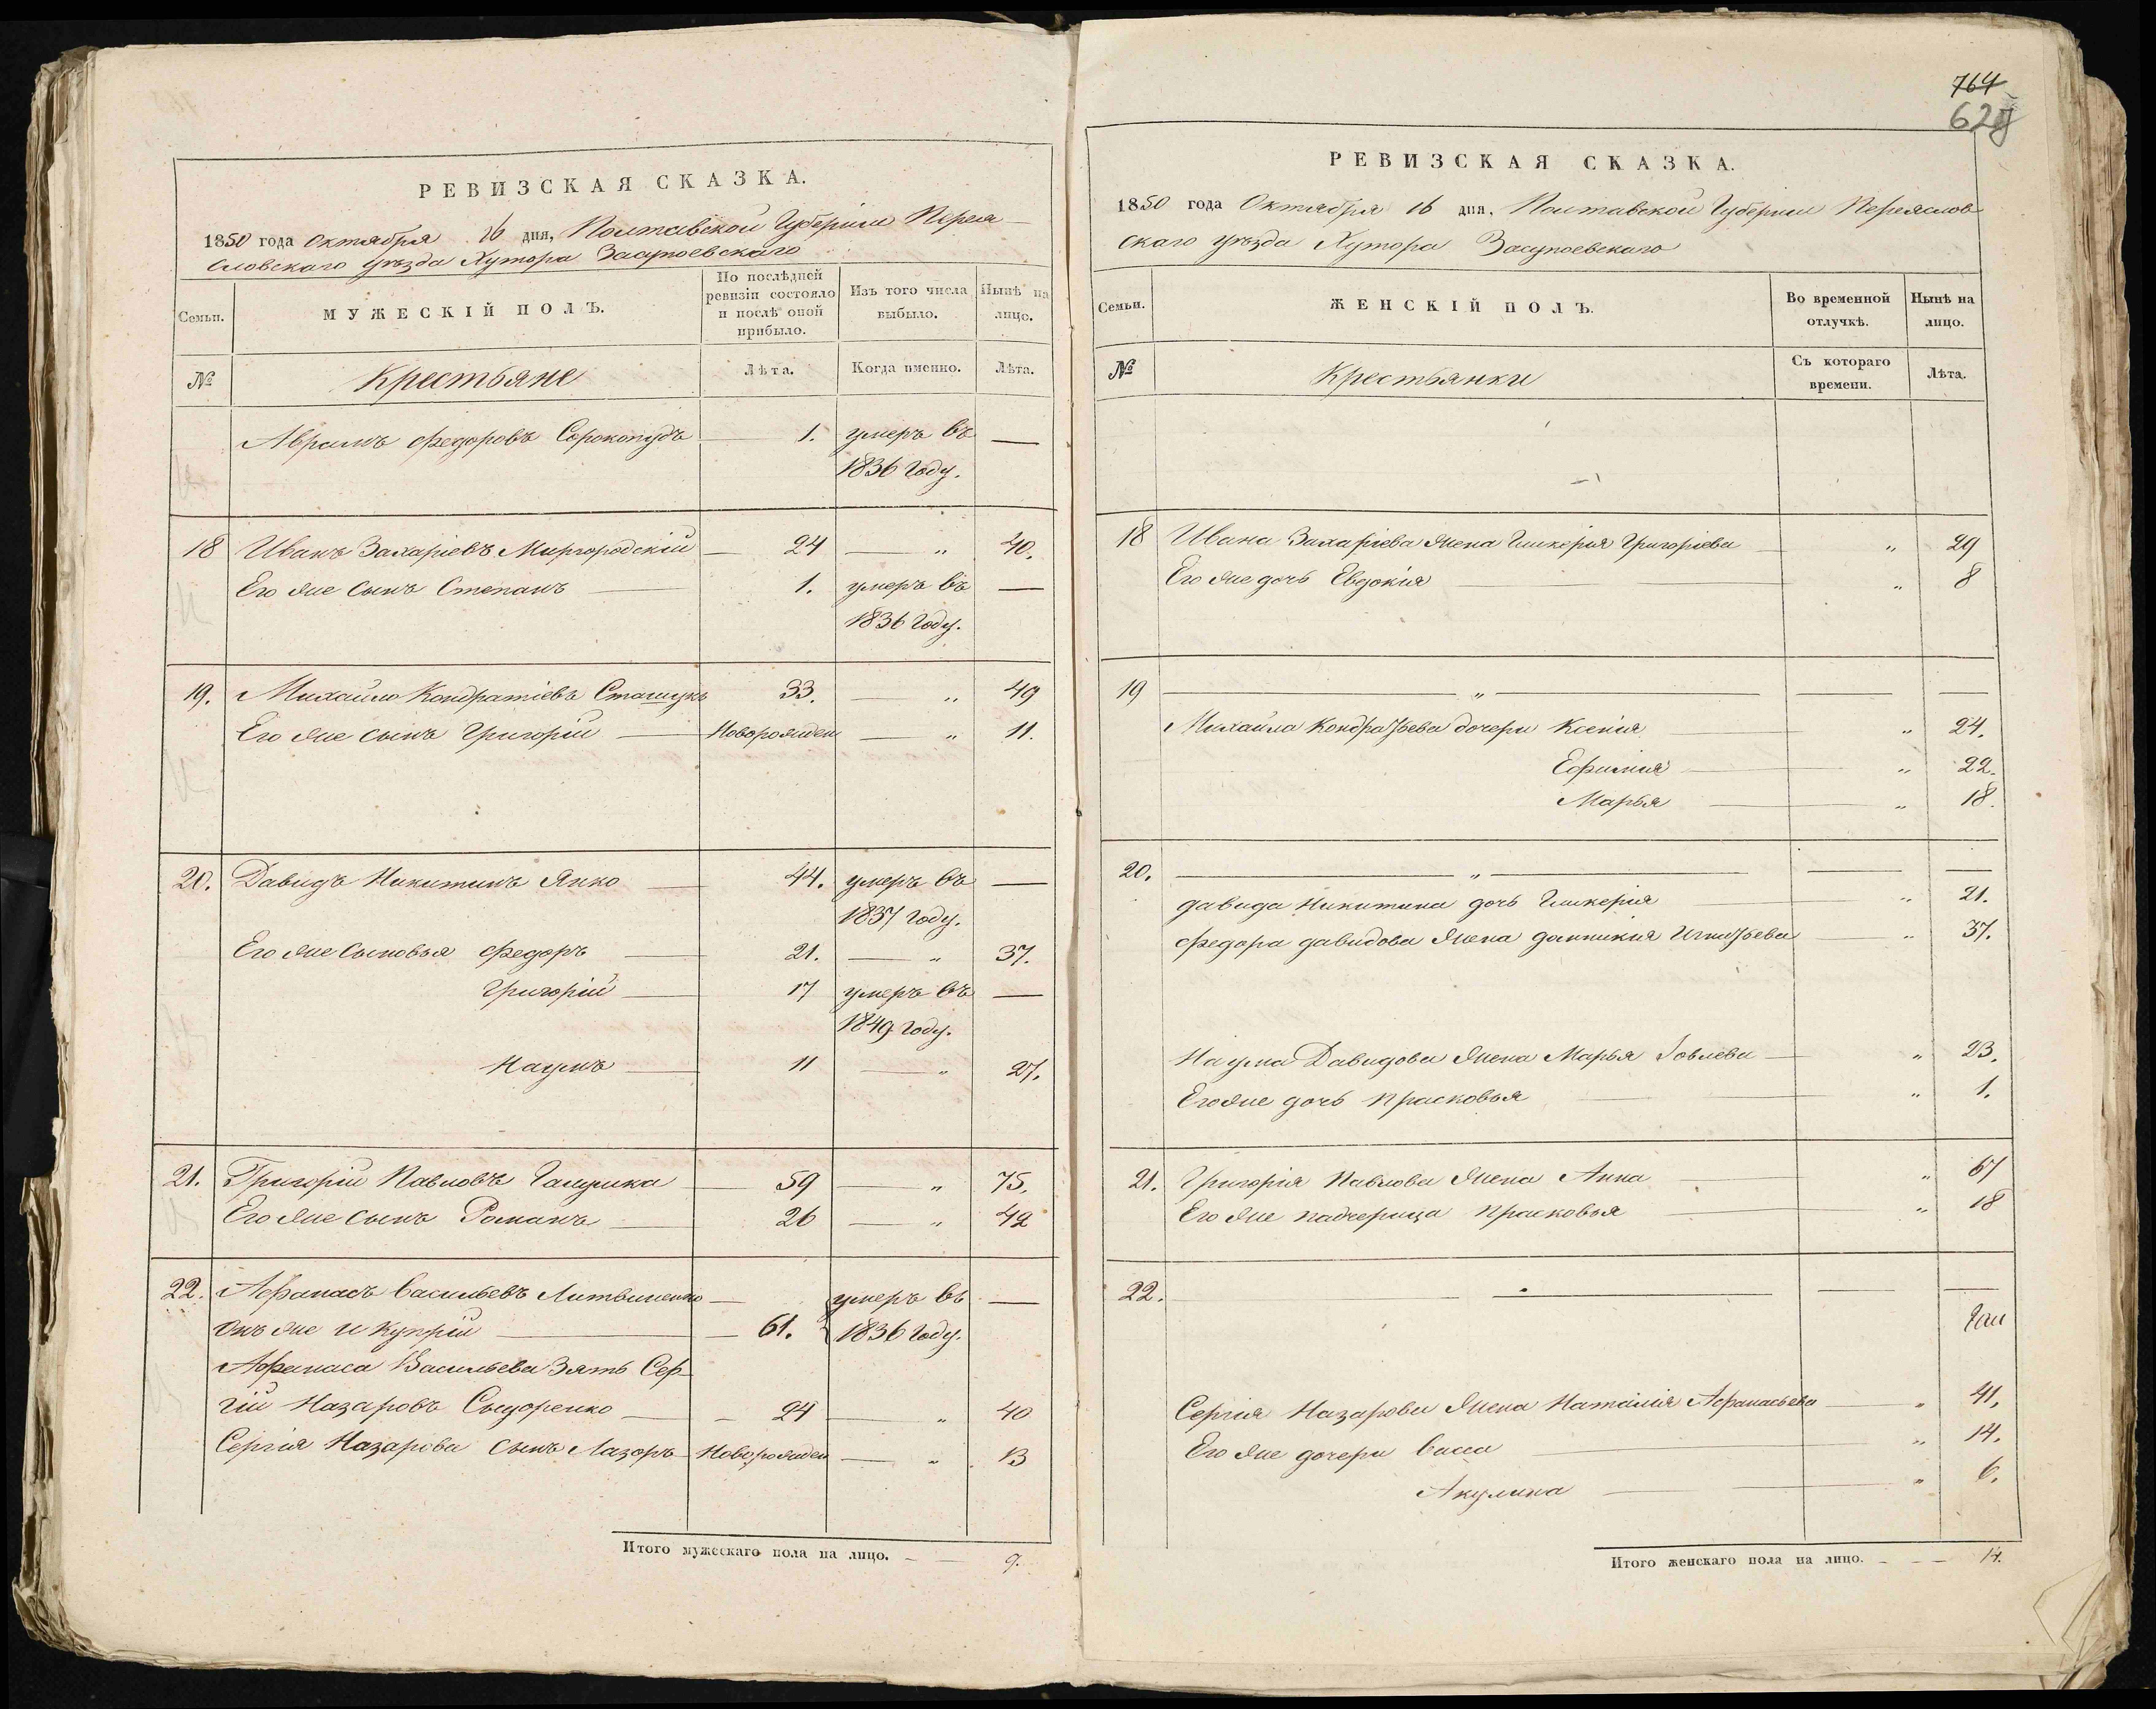 РЕВИЗСКАЯ СКАЗКА.
1850 года Октября 16 дня, Полтавской Губерніи Перея
словскаго уѣзда Хутора Засупоевскаго
Семьи.
МУЖЕСКІЙ ПОЛЪ.
По послѣдней ревизіи состояло и послѣ оной прибыло.
Изъ того числа выбыло.
Нынѣ на лицо.
№ Крестьяне Лѣта. Когда именно. Лѣта.
Аврамъ Федоровъ Сорокопудъ 1. умеръ въ —
1836 году.
18 Иванъ Захаріевъ Миргородскій — 24 — „ 40.
Его же сынъ Степанъ — 1. умеръ въ —
1836 году.
19. Михайло Кондратіевъ 33. — „ 49
Его же сынъ Григорій — Новорожден — „ 11.
20. Давидъ Никитинъ Янко — 44. умеръ въ —
1837 году.
Его же сыновья Федоръ — 21. — „ 37.
Григорій — 17 умеръ въ —
1849 году.
Наумъ — 11 — „ 27.
21. Григорій Павловъ Галушка — 59 — „ 75.
Его же сынъ Романъ — 26 — „ 42
22. Афанасъ Васильевъ Литвиненко — умеръ въ —
онъ же и Купрій — 61. 1836 году.
Афанаса Васильева зять Сер-
гій Назаровъ Сыдоренко — 24 — „ 40
Сергія Назарова сынъ Лазоръ — Новорожден — „ 13
Итого мужескаго пола на лицо. — 9.
764
РЕВИЗСКАЯ СКАЗКА.
1850 года Октября 16 дня, Полтавской Губерніи Переяслов
скаго уѣзда Хутора Засупоевскаго
Семьи.
ЖЕНСКІЙ ПОЛЪ.
Во временной отлучкѣ.
Нынѣ на лицо.
№ Крестьянки Съ котораго времени. Лѣта.
18 Ивана Захаріева жена Гликерія Григоріева — „ 29
Его же дочь Евдокія — „ 8
19 — „ — — —
Михайла Кондратьева дочери Ксенія — „ 24.
Ефимія — „ 22.
Марья — „ 18.
20. — „ — — —
Давида Никитина дочь Гликерія — „ 21.
Федора Давидова жена Домникія Игнатьева — „ 37.
Наума Давидова жена Марья Іовлева — „ 23.
Его же дочь Прасковья — „ 1.
21. Григорія Павлова жена Анна — „ 67
Его же падчерица Прасковья — „ 18
22. — — — —
Сергія Назарова жена Наталія Афанасьева — „ 41.
Его же дочери Васса — „ 14.
Акулина — „ 6.
Итого женскаго пола на лицо. — 14.